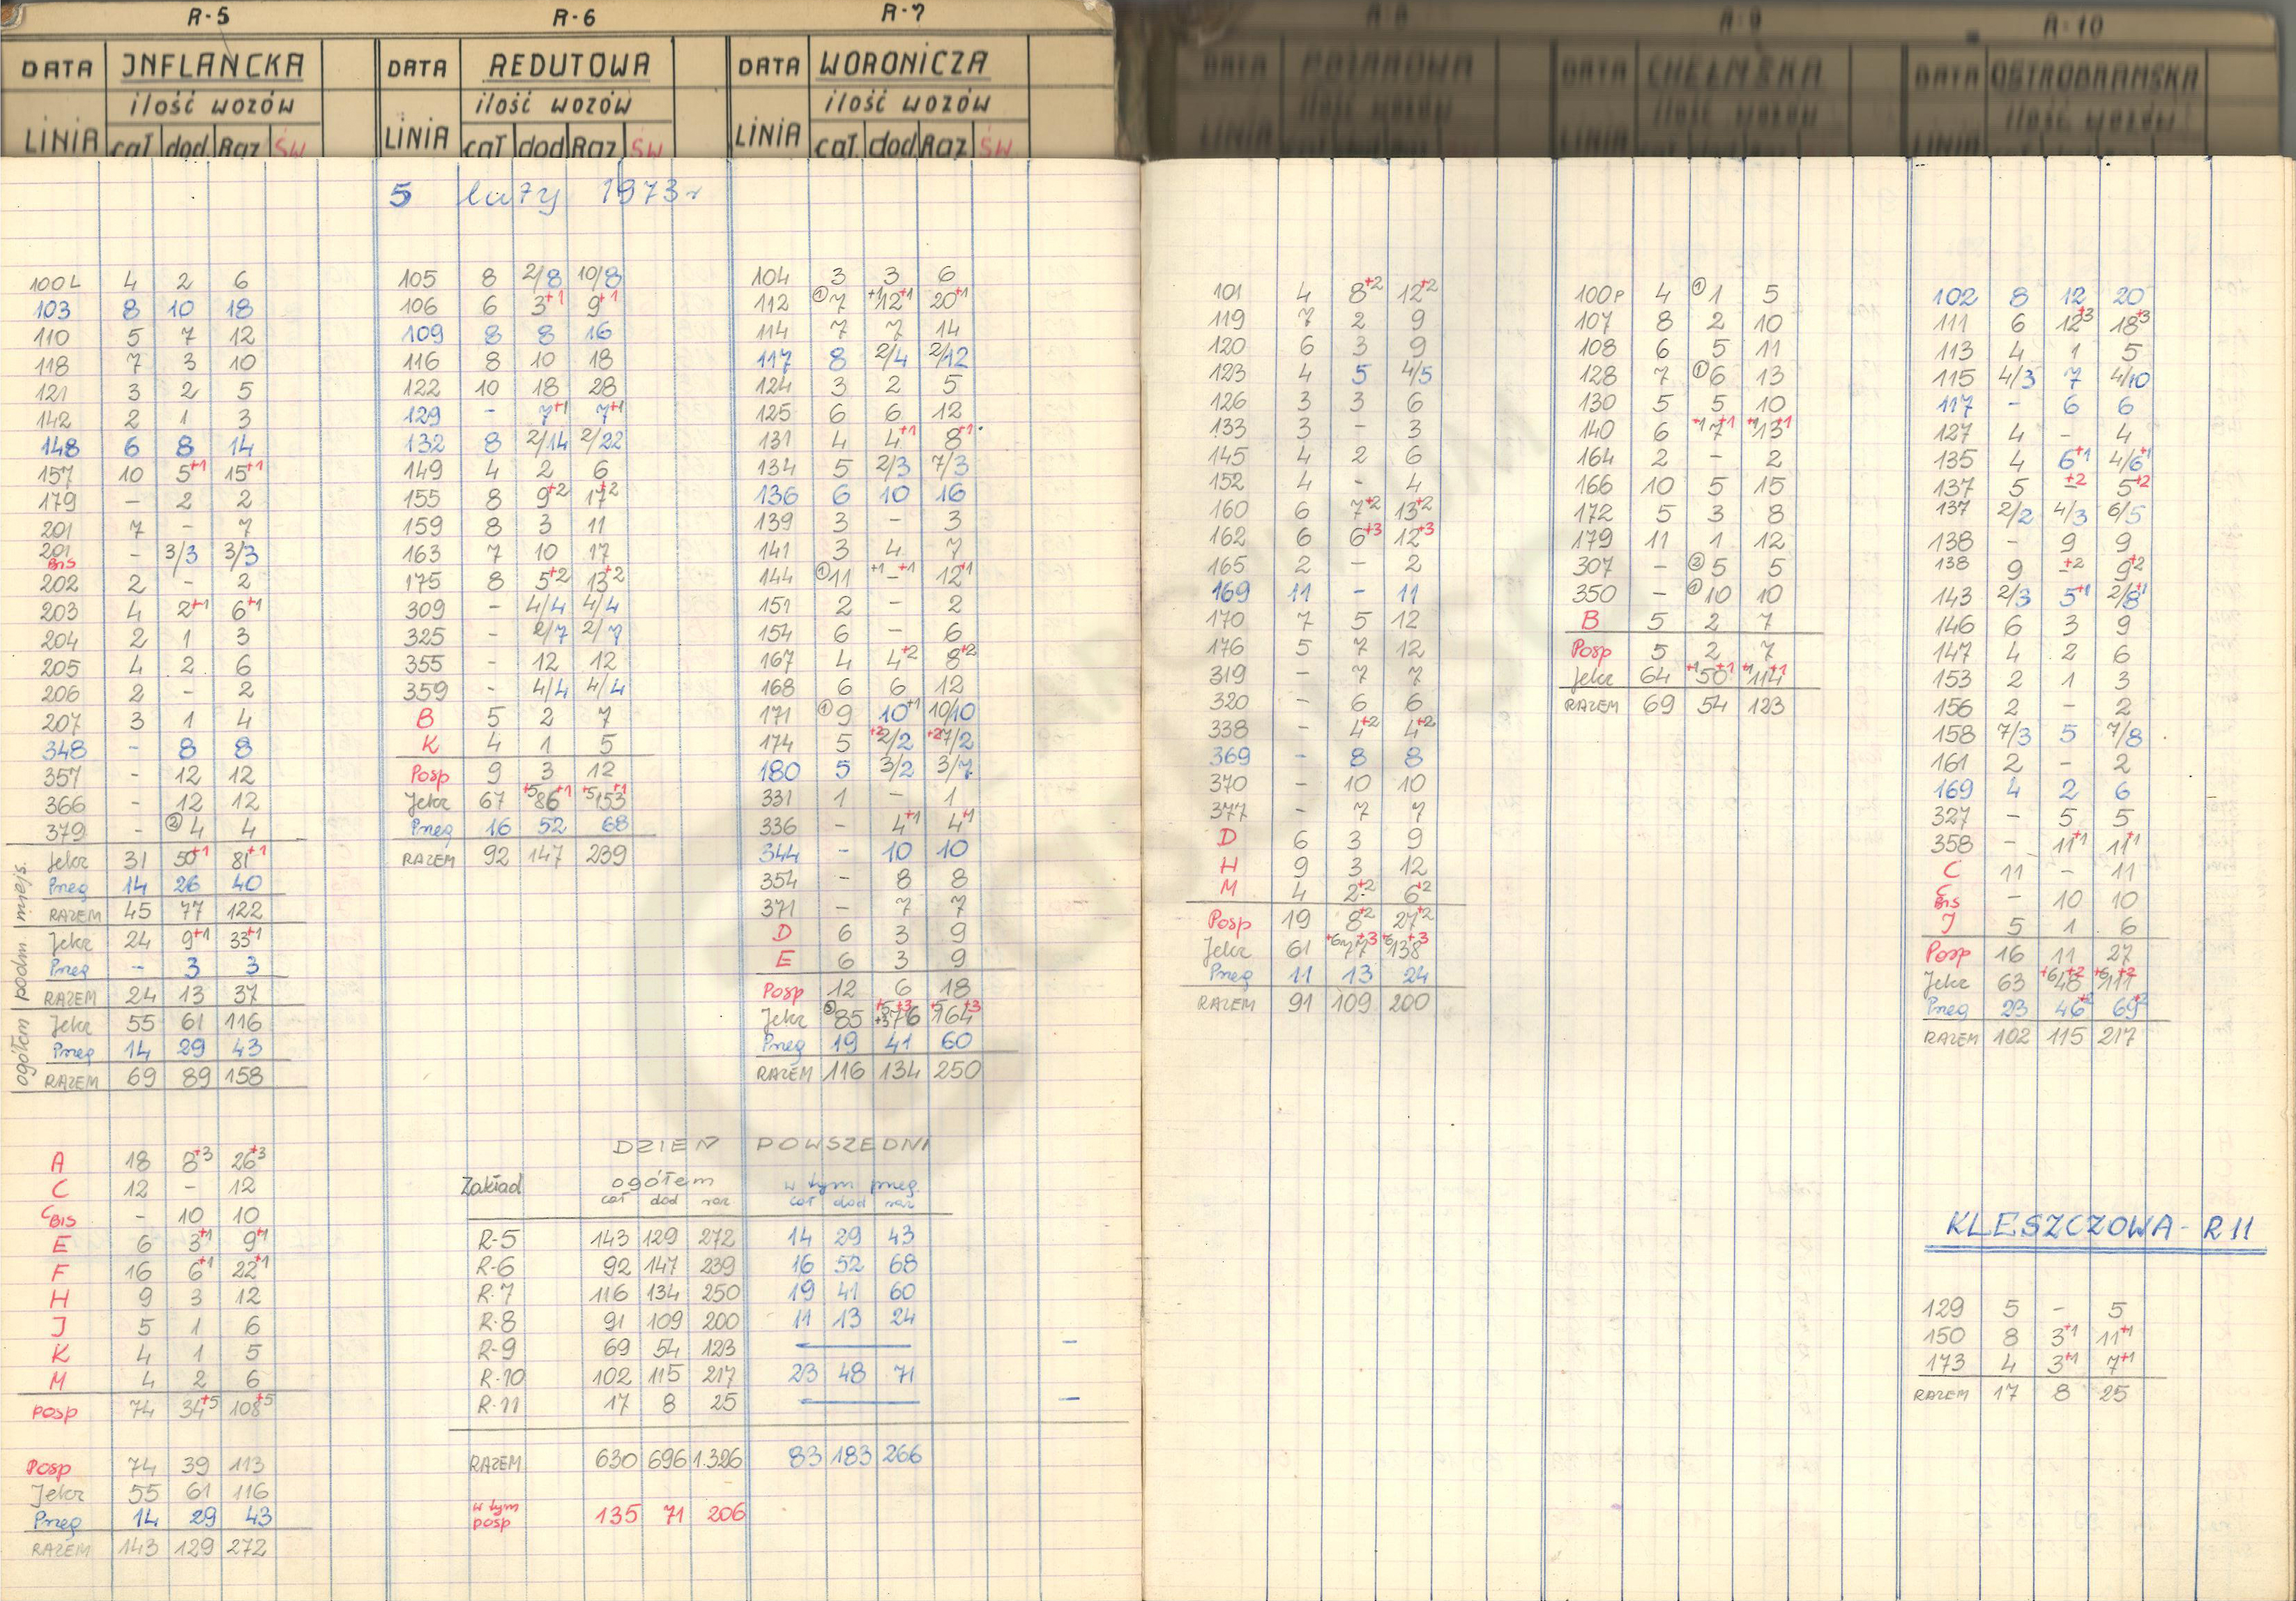 R-5
DATA INFLANCKA
ilość wozów
LINIA cał dod Raz ŚW
100L 4 2 6
103 8 10 18
110 5 7 12
118 7 3 10
121 3 2 5
142 2 1 3
148 6 8 14
157 10 5+1 15+1
179 - 2 2
201 7 - 7
201 BIS - 3/3 3/3
202 2 - 2
203 4 2+1 6+1
204 2 1 3
205 4 2 6
206 2 - 2
207 3 1 4
348 - 8 8
357 - 12 12
366 - 12 12
379 - ② 4 4
miejs.
Jelcz 31 50+1 81+1
Przeg 14 26 40
RAZEM 45 77 122
podm
Jelcz 24 9+1 33+1
Przeg - 3 3
RAZEM 24 13 37
ogółem
Jelcz 55 61 116
Przeg 14 29 43
RAZEM 69 89 158
A 18 8+3 26+3
C 12 - 12
C BIS - 10 10
E 6 3+1 9+1
F 16 6+1 22+1
H 9 3 12
J 5 1 6
K 4 1 5
M 4 2 6
posp 74 34+5 108+5
Posp 74 39 113
Jelcz 55 61 116
Przeg 14 29 43
RAZEM 143 129 272
R-6
DATA REDUTOWA
ilość wozów
LINIA cał dod Raz ŚW
5 luty 1973 r
105 8 2/8 10/8
106 6 3+1 9+1
109 8 8 16
116 8 10 18
122 10 18 28
129 - 7+1 7+1
132 8 2/14 2/22
149 4 2 6
155 8 9+2 17+2
159 8 3 11
163 7 10 17
175 8 5+2 13+2
309 - 4/4 4/4
325 - 2/7 2/7
355 - 12 12
359 - 4/4 4/4
B 5 2 7
K 4 1 5
Posp 9 3 12
Jelcz 67 +5 86+1 +5 153+1
Przeg 16 52 68
RAZEM 92 147 239
R-7
DATA WORONICZA
ilość wozów
LINIA cał. dod Raz ŚW
104 3 3 6
112 ① 7 +1 12+1 20+1
114 7 7 14
117 8 2/4 2/12
124 3 2 5
125 6 6 12
131 4 4+1 8+1
134 5 2/3 7/3
136 6 10 16
139 3 - 3
141 3 4 7
144 ① 11 +1 - +1 12+1
151 2 - 2
154 6 - 6
167 4 4+2 8+2
168 6 6 12
171 ① 9 10+1 10/10
174 5 +2 2/2 +2 7/2
180 5 3/2 3/7
331 1 - 1
336 - 4+1 4+1
344 - 10 10
354 - 8 8
371 - 7 7
D 6 3 9
E 6 3 9
Posp 12 6 18
Jelcz ③ 85 +5 +3 76+3 +5 164+3
Przeg 19 41 60
RAZEM 116 134 250
DZIEŃ POWSZEDNI
Zakład ogółem w tym przeg
cał dod raz cał dod raz
R-5 143 129 272 14 29 43
R-6 92 147 239 16 52 68
R-7 116 134 250 19 41 60
R-8 91 109 200 11 13 24
R-9 69 54 123 -
R-10 102 115 217 23 48 71
R-11 17 8 25 -
RAZEM 630 696 1.326 83 183 266
w tym posp 135 71 206
R-8
DATA POŻAROWA
ilość wozów
LINIA
101 4 8+2 12+2
119 7 2 9
120 6 3 9
123 4 5 4/5
126 3 3 6
133 3 - 3
145 4 2 6
152 4 - 4
160 6 7+2 13+2
162 6 6+3 12+3
165 2 - 2
169 11 - 11
170 7 5 12
176 5 7 12
319 - 7 7
320 - 6 6
338 - 4+2 4+2
369 - 8 8
370 - 10 10
377 - 7 7
D 6 3 9
H 9 3 12
M 4 2+2 6+2
Posp 19 8+2 27+2
Jelcz 61 +6 77+3 +6 138+3
Przeg 11 13 24
RAZEM 91 109 200
R-9
DATA CHEŁMSKA
ilość wozów
LINIA
100P 4 ① 1 5
107 8 2 10
108 6 5 11
128 7 ① 6 13
130 5 5 10
140 6 +1 7+1 +1 13+1
164 2 - 2
166 10 5 15
172 5 3 8
179 11 1 12
307 - ② 5 5
350 - ① 10 10
B 5 2 7
Posp 5 2 7
Jelcz 64 +1 50+1 +1 114+1
RAZEM 69 54 123
R-10
DATA OSTROBRAMSKA
ilość wozów
LINIA
102 8 12 20
111 6 12+3 18+3
113 4 1 5
115 4/3 7 4/10
117 - 6 6
127 4 - 4
135 4 6+1 4/6+1
137 5 - +2 5+2
137 2/2 4/3 6/5
138 - 9 9
138 9 - +2 9+2
143 2/3 5+1 2/8+1
146 6 3 9
147 4 2 6
153 2 1 3
156 2 - 2
158 7/3 5 7/8
161 2 - 2
169 4 2 6
327 - 5 5
358 - 11+1 11+1
C 11 - 11
C BIS - 10 10
J 5 1 6
Posp 16 11 27
Jelcz 63 +6 48+2 +6 111+2
Przeg 23 46+2 69+2
RAZEM 102 115 217
KLESZCZOWA - R 11
129 5 - 5
150 8 3+1 11+1
173 4 3+1 7+1
RAZEM 17 8 25